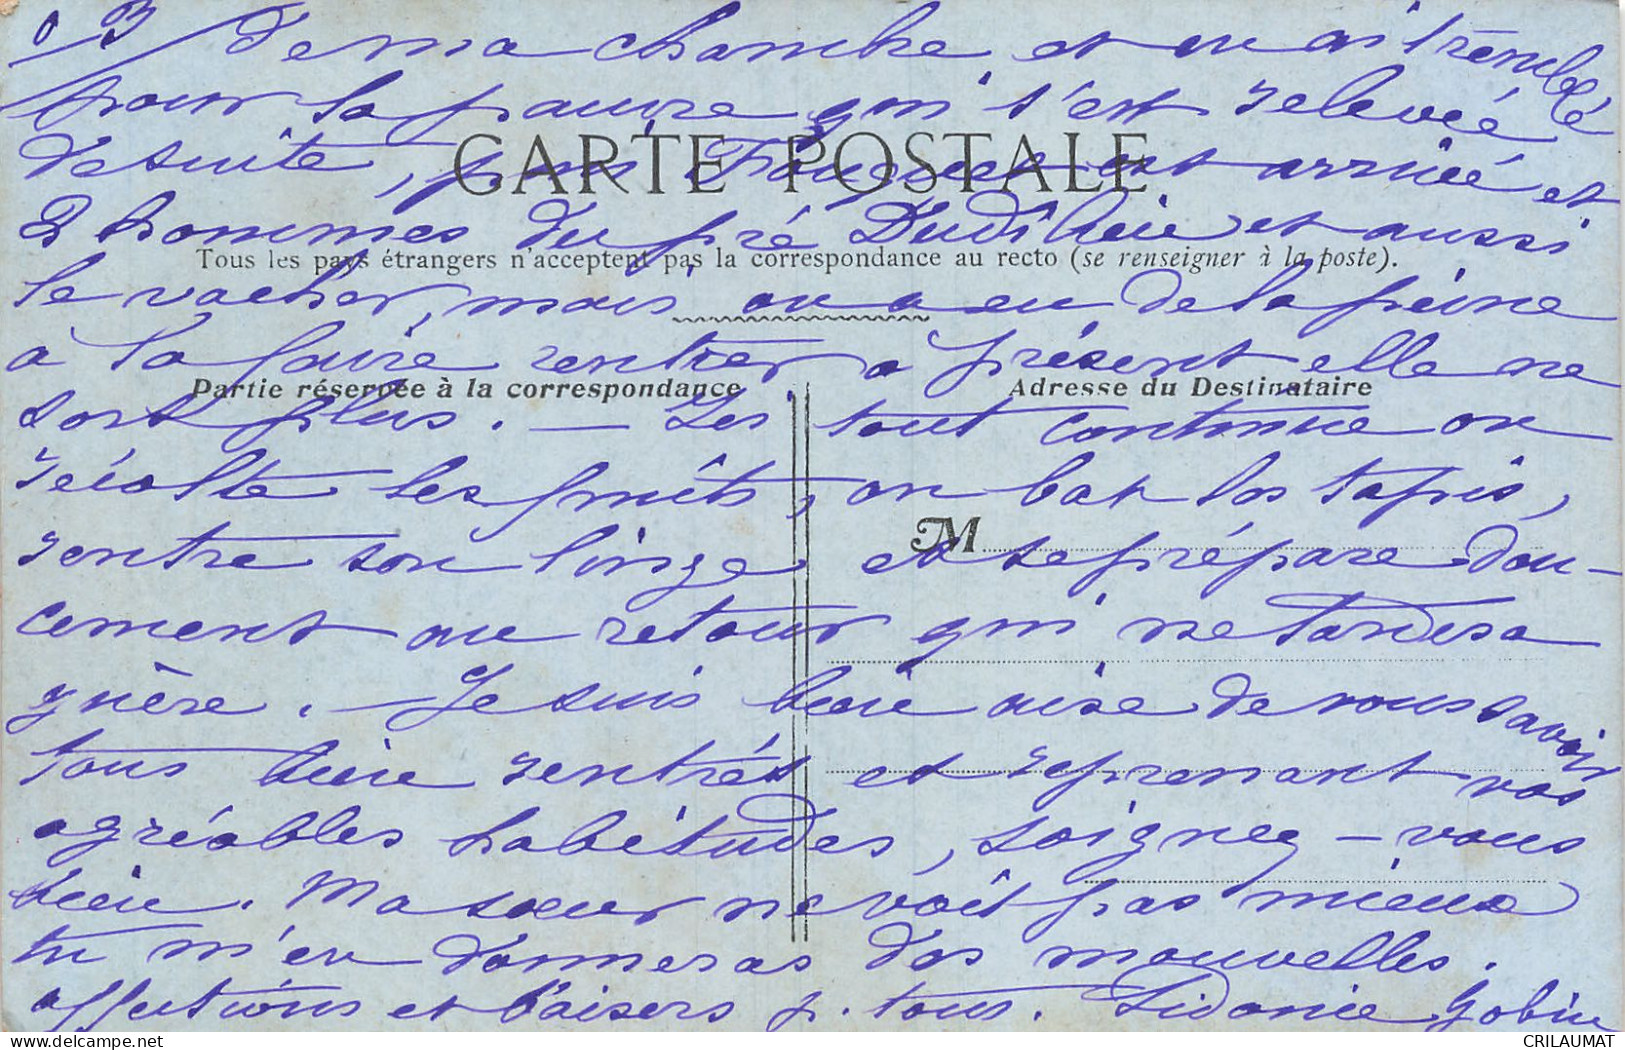 3) de ma chambre et en ai tremblé
pour la pauvre qui s'est relevée
CARTE POSTALE
de suite, puis est arrivé et
2 hommes du pré et aussi
Tous les pays étrangers n'acceptent pas la correspondance au recto (se renseigner à la poste).
le vacher, mais on a eu de la peine
à la faire rentrer à présent elle ne
Partie réservée à la correspondance
Adresse du Destinataire
sort plus. — Ici tout continue on
récolte les fruits, on bat les tapis,
M
rentre son linge et se prépare dou-
cement au retour qui ne tardera
guère. — Je suis bien aise de vous savoir
tous bien rentrés et reprenant vos
agréables habitudes, soignez-vous
bien. Ma sœur ne voit pas mieux
tu m'en donneras des nouvelles.
affections et baisers p. tous. Sidonie Gobin
CRILAUMAT